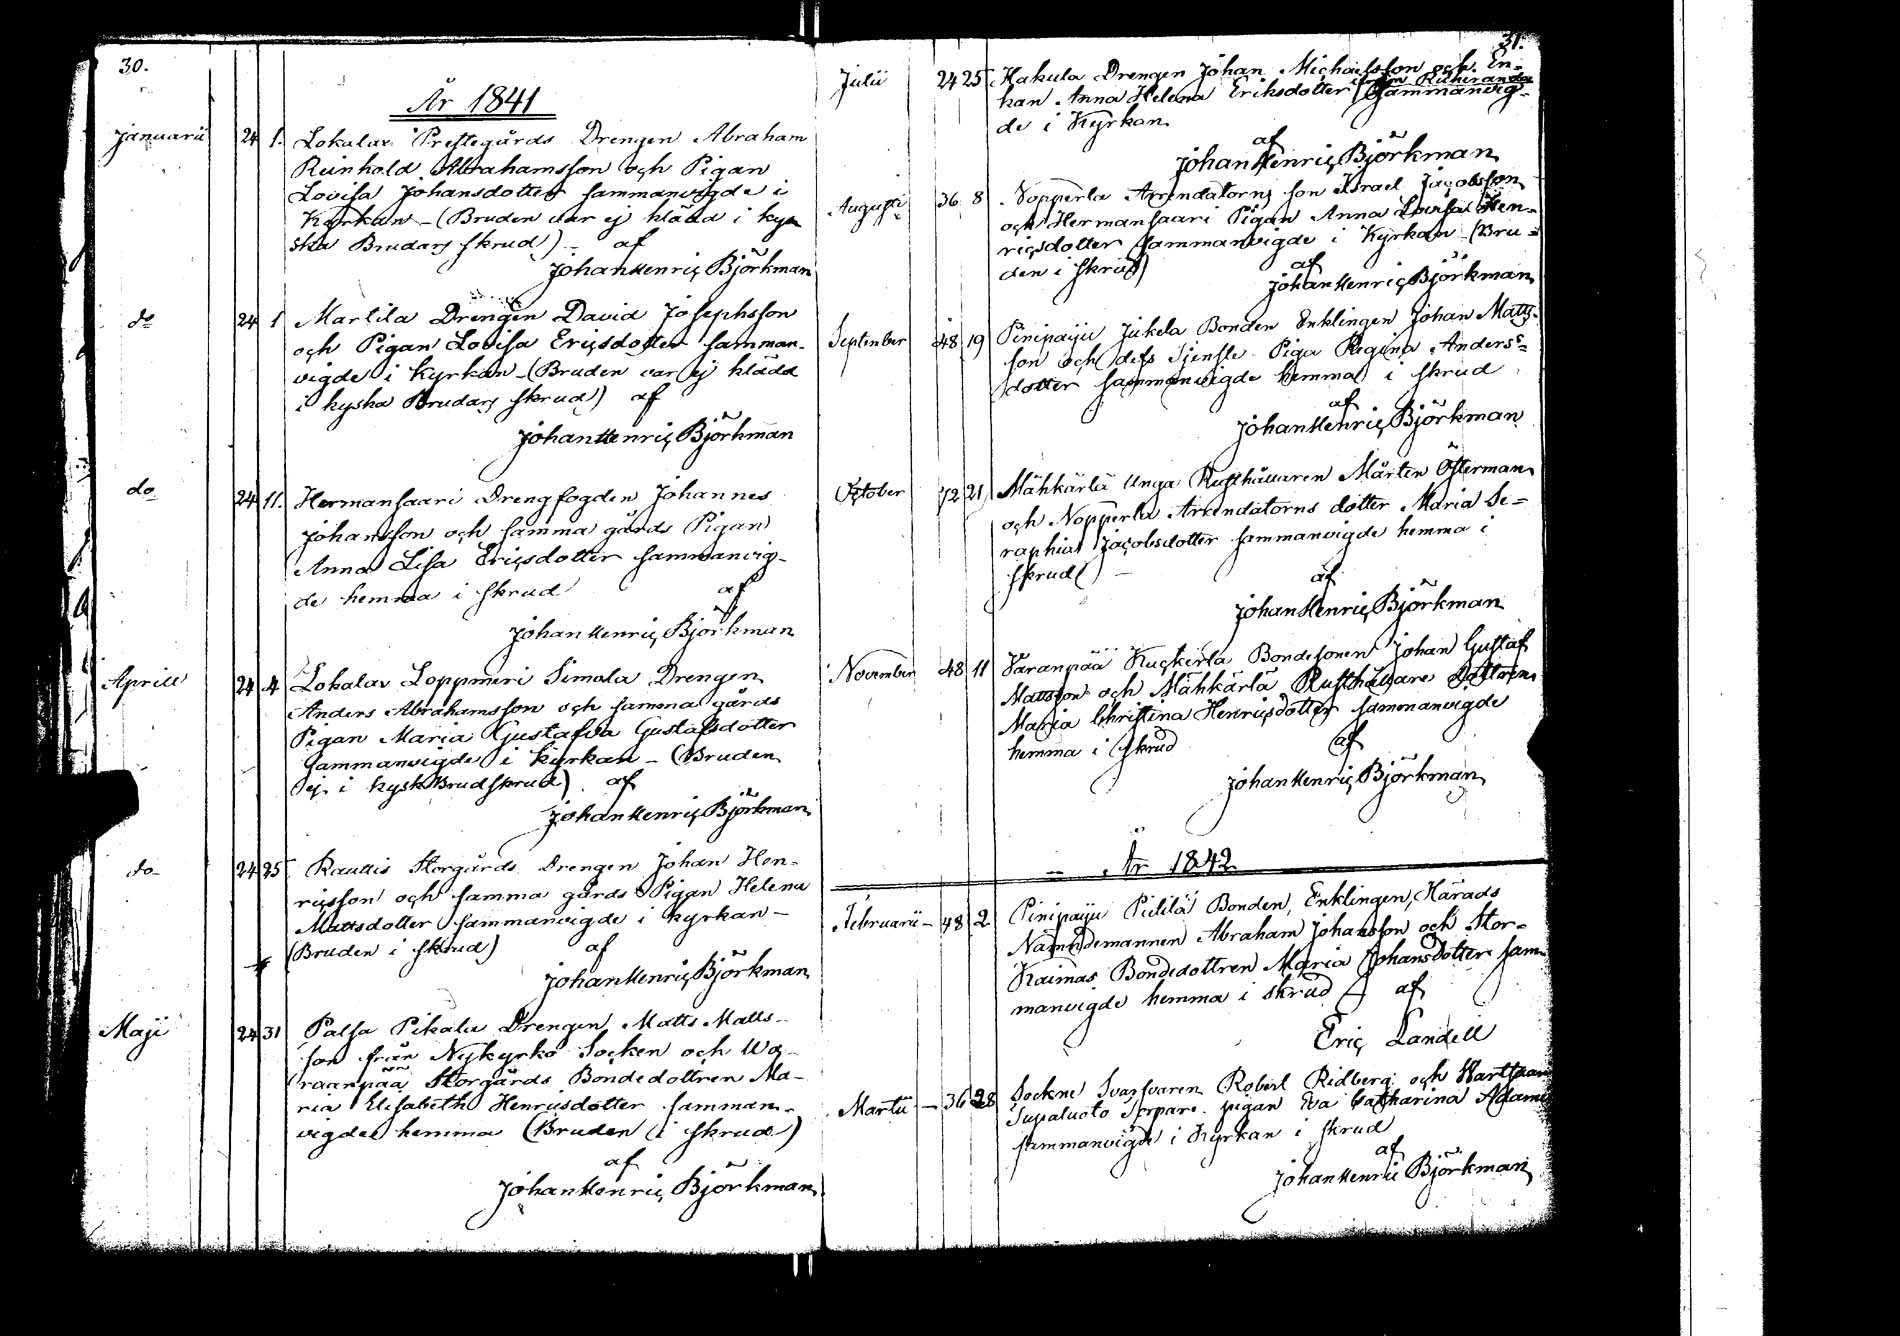 30.
År 1841
Januarii 24 1. Lokalax Prestegårds Drengen Abraham
Reinhold Abrahamsson och Pigan
Lovisa Johansdotter sammanvigde i
Kyrkan – (Bruden var ej klädd i kys
ska Brudars skrud) – af
Johan Henric Björkman
do 24 1 Martila Drengen David Josephsson
och Pigan Lovisa Ericsdotter samman-
vigde i Kyrkan – (Bruden var ej klädd
i kyska Brudars skrud) af
Johan Henric Björkman
do 24 11. Hermansaari Drengfogden Johannes
Johansson och samma gårds Pigan
Anna Lisa Ericsdotter sammanvig-
de hemma i skrud af
Johan Henric Björkman
Aprill 24 4 Lokalax Loppmeri Simola Drengen
Anders Abrahamsson och samma gårds
Pigan Maria Gustafva Gustafsdotter
sammanvigde i kyrkan – (Bruden
ej i kysk Brudskrud) af
Johan Henric Björkman
do 24 25 Rautis Storgårds Drengen Johan Hen-
ricsson och samma gårds Pigan Helena
Mattsdotter sammanvigde i kyrkan –
(Bruden i skrud) af
Johan Henric Björkman
Maji 24 31 Palsa Pikala Drengen Matts Matts-
son från Nykyrko Socken och Wa-
raanpää Storgårds Bondedottren Ma-
ria Elisabeth Henricsdotter samman-
vigde hemma (Bruden i skrud)
af
Johan Henric Björkman
31.
Julii 24 25 Hakula Drengen Johan Michaelsson och En-
kan Anna Helena Eriksdotter sammanvig-
de i Kyrkan
af
Johan Henric Björkman
Augusti 36 8 Nopperla Arrendatorns son Israel Jacobsson
och Hermansaari Pigan Anna Lovisa Hen-
ricsdotter sammanvigde i Kyrkan – (Bru-
den i skrud) af
Johan Henric Björkman
September 48 19 Pinipaju Jukola Bonden Enklingen Johan Matts-
son och dess Tjenste Piga Regina Anders-
dotter sammanvigde hemma i skrud
af
Johan Henric Björkman
October 72 21 Mähkärlä Unga Rusthållaren Mårten Österman
och Nopperla Arrendatorns dotter Maria Se-
raphia Jacobsdotter sammanvigde hemma i
skrud –
af
Johan Henric Björkman
November 48 11 Varanpää Kuckerla Bondesonen Johan Gustaf
Mattsson och Mähkärlä Rusthållare dottren
Maria Christina Henricsdotter sammanvigde
hemma i skrud af
Johan Henric Björkman
– År 1842
Februarii – 48 2 Pinipaju Pietilä Bonden, Enklingen, Härads
Nämndemannen Abraham Johansson och Stor-
Kaimas Bondedottren Maria Johansdotter sam-
manvigde hemma i skrud – af
Eric Landell
Martii – 36 28 Sockne Svarfvaren Robert Ridberg och
Torpare pigan Eva Catharina
sammanvigde i Kyrkan i skrud
af
Johan Henric Björkman